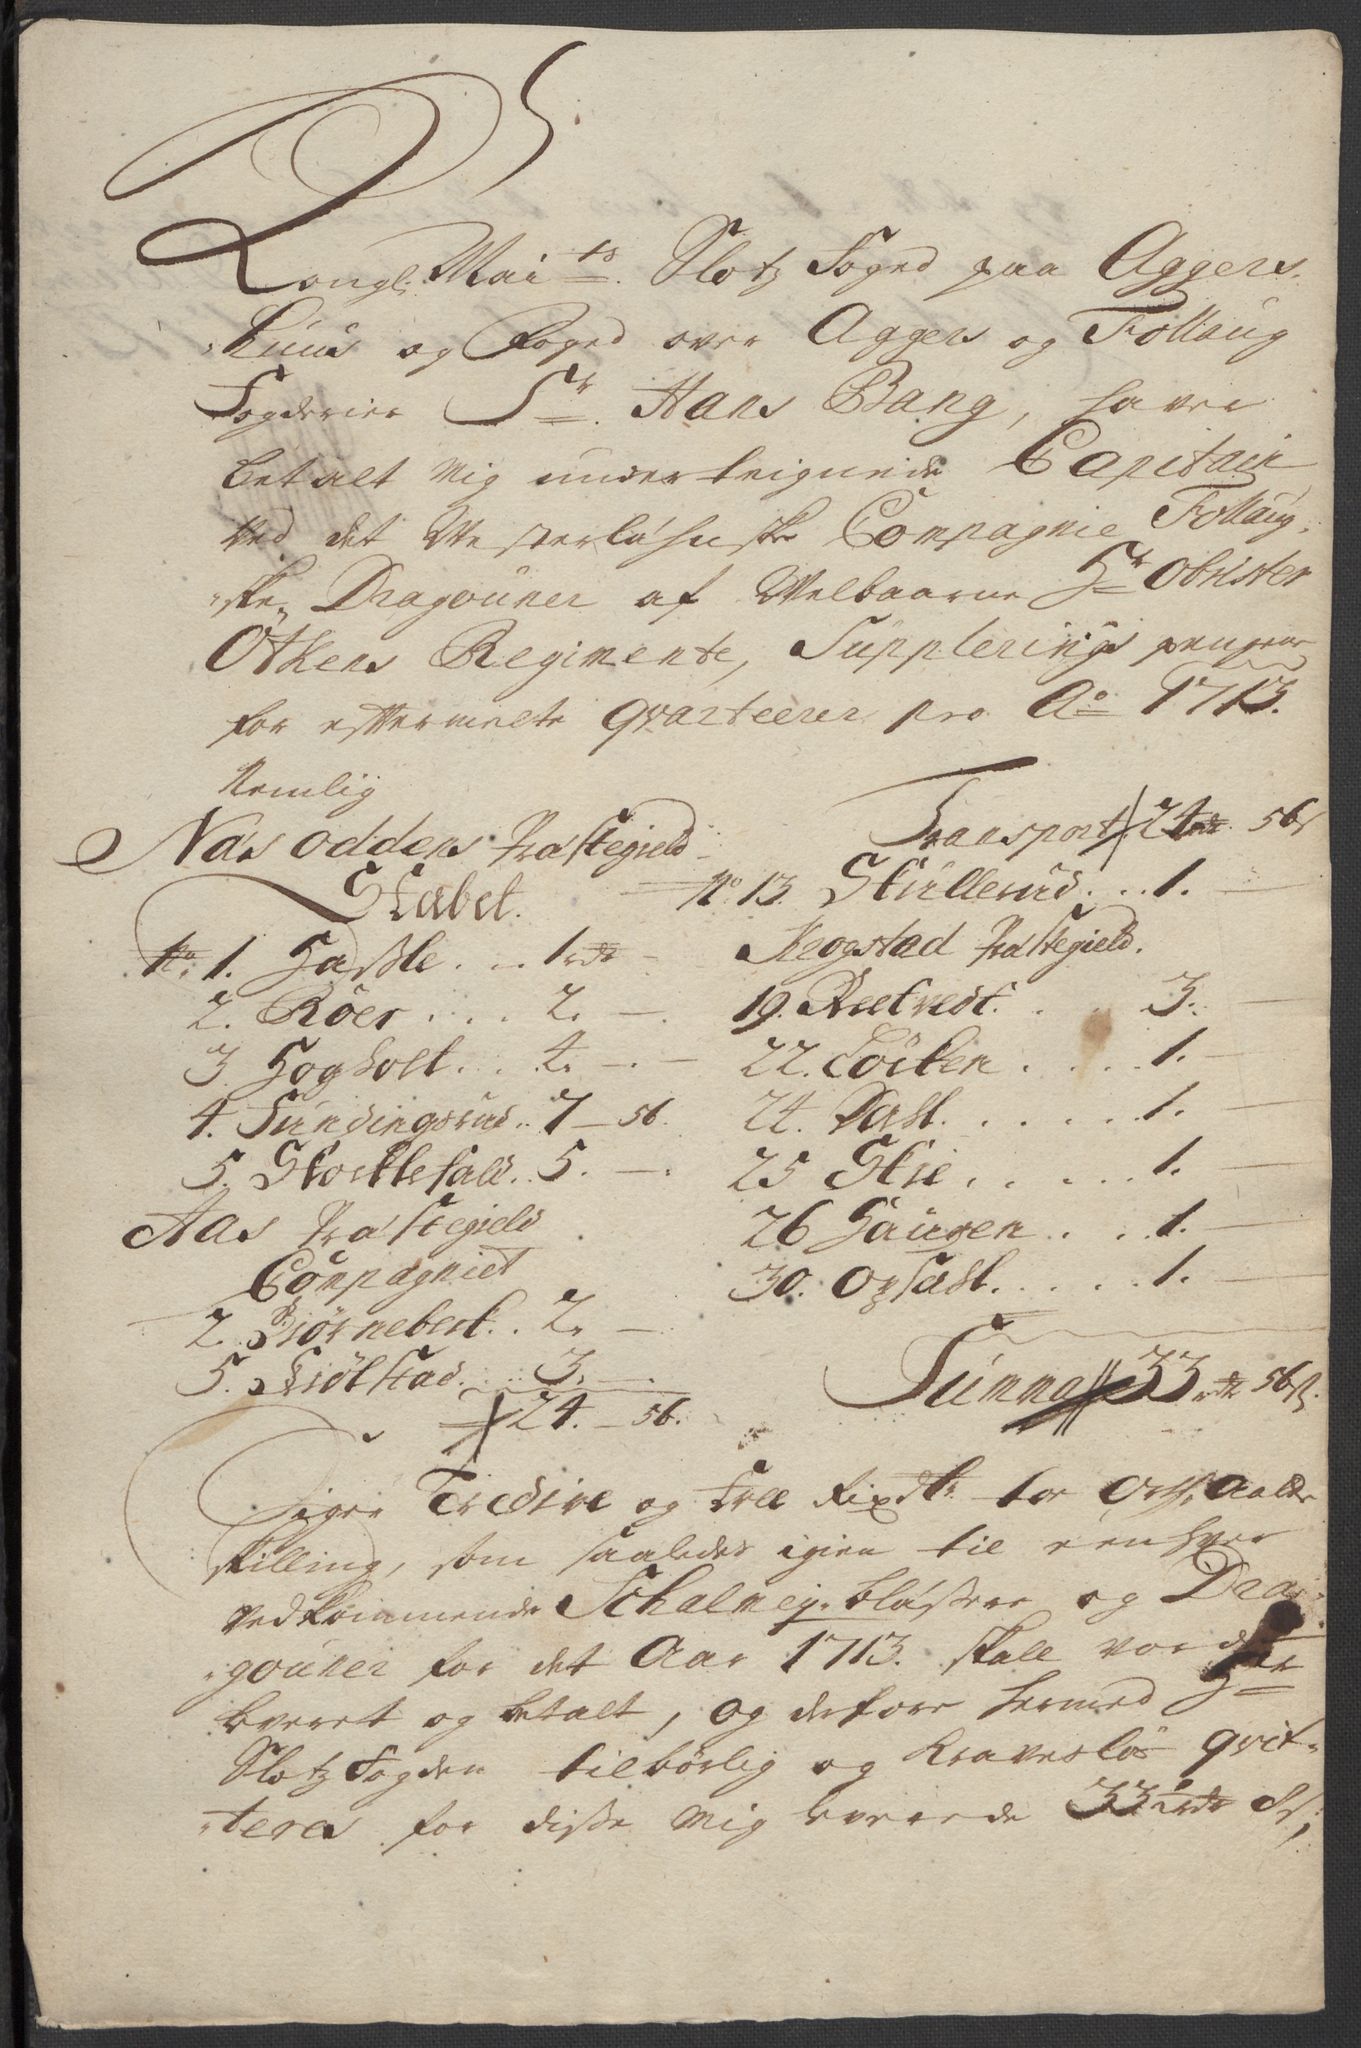 Kongl: Mai.ts Slotz Foged paa Aggers-
Huus og Foged over Aggers og Follaug
Fogderier Sr. Hans Bang, haver
betalt mig underteignede Capitain
ved det Westerløhnske Compagnie Follaug-
ske Dragouner af Welbaarne Hr Obrister
Øtkens Regimente, Supplerings penger
for effermelte qvarteerer pro Ao 1713.
Nemlig
Næsoddens Præstegield
Stabet.
No. 1. Hasle ... 1 rdr -
2. Röer .... 2. -.
3 Hogholt ... 4. -. -
4. Sundingsrud .. 7 - 56.
5. Skoklefald .. 5. -.
Aas Præstegield
Compagniet
2. Biørnebek .. 2. -
5. Kiølstad .... 3. -.
24. - 56.
Transport 24 rdr. 56 s
No. 13. Skullerud ... 1. -
Krogstad Præstegield.
19. Reetvedt. .. 3. -
22. Löcken .... 1. -
24. Dahl ..... 1. -
25 Skie ..... 1. -
26 Haugen ... 1. -
30. Opsahl .... 1. -
Summa 33 rdr 56 s.
Siger Tredive og tree Rixdr
skilling, som saaledes igien til eenhver
vedkommende Schalmej-blåssere og Dra-
gouner for det Aar 1713. skall vorde
leveret og betalt, og derfore hermed Hr
Slotz Fogden tilbörlig og Kravesløs qvit-
teres for disse mig leverede 33 rdr